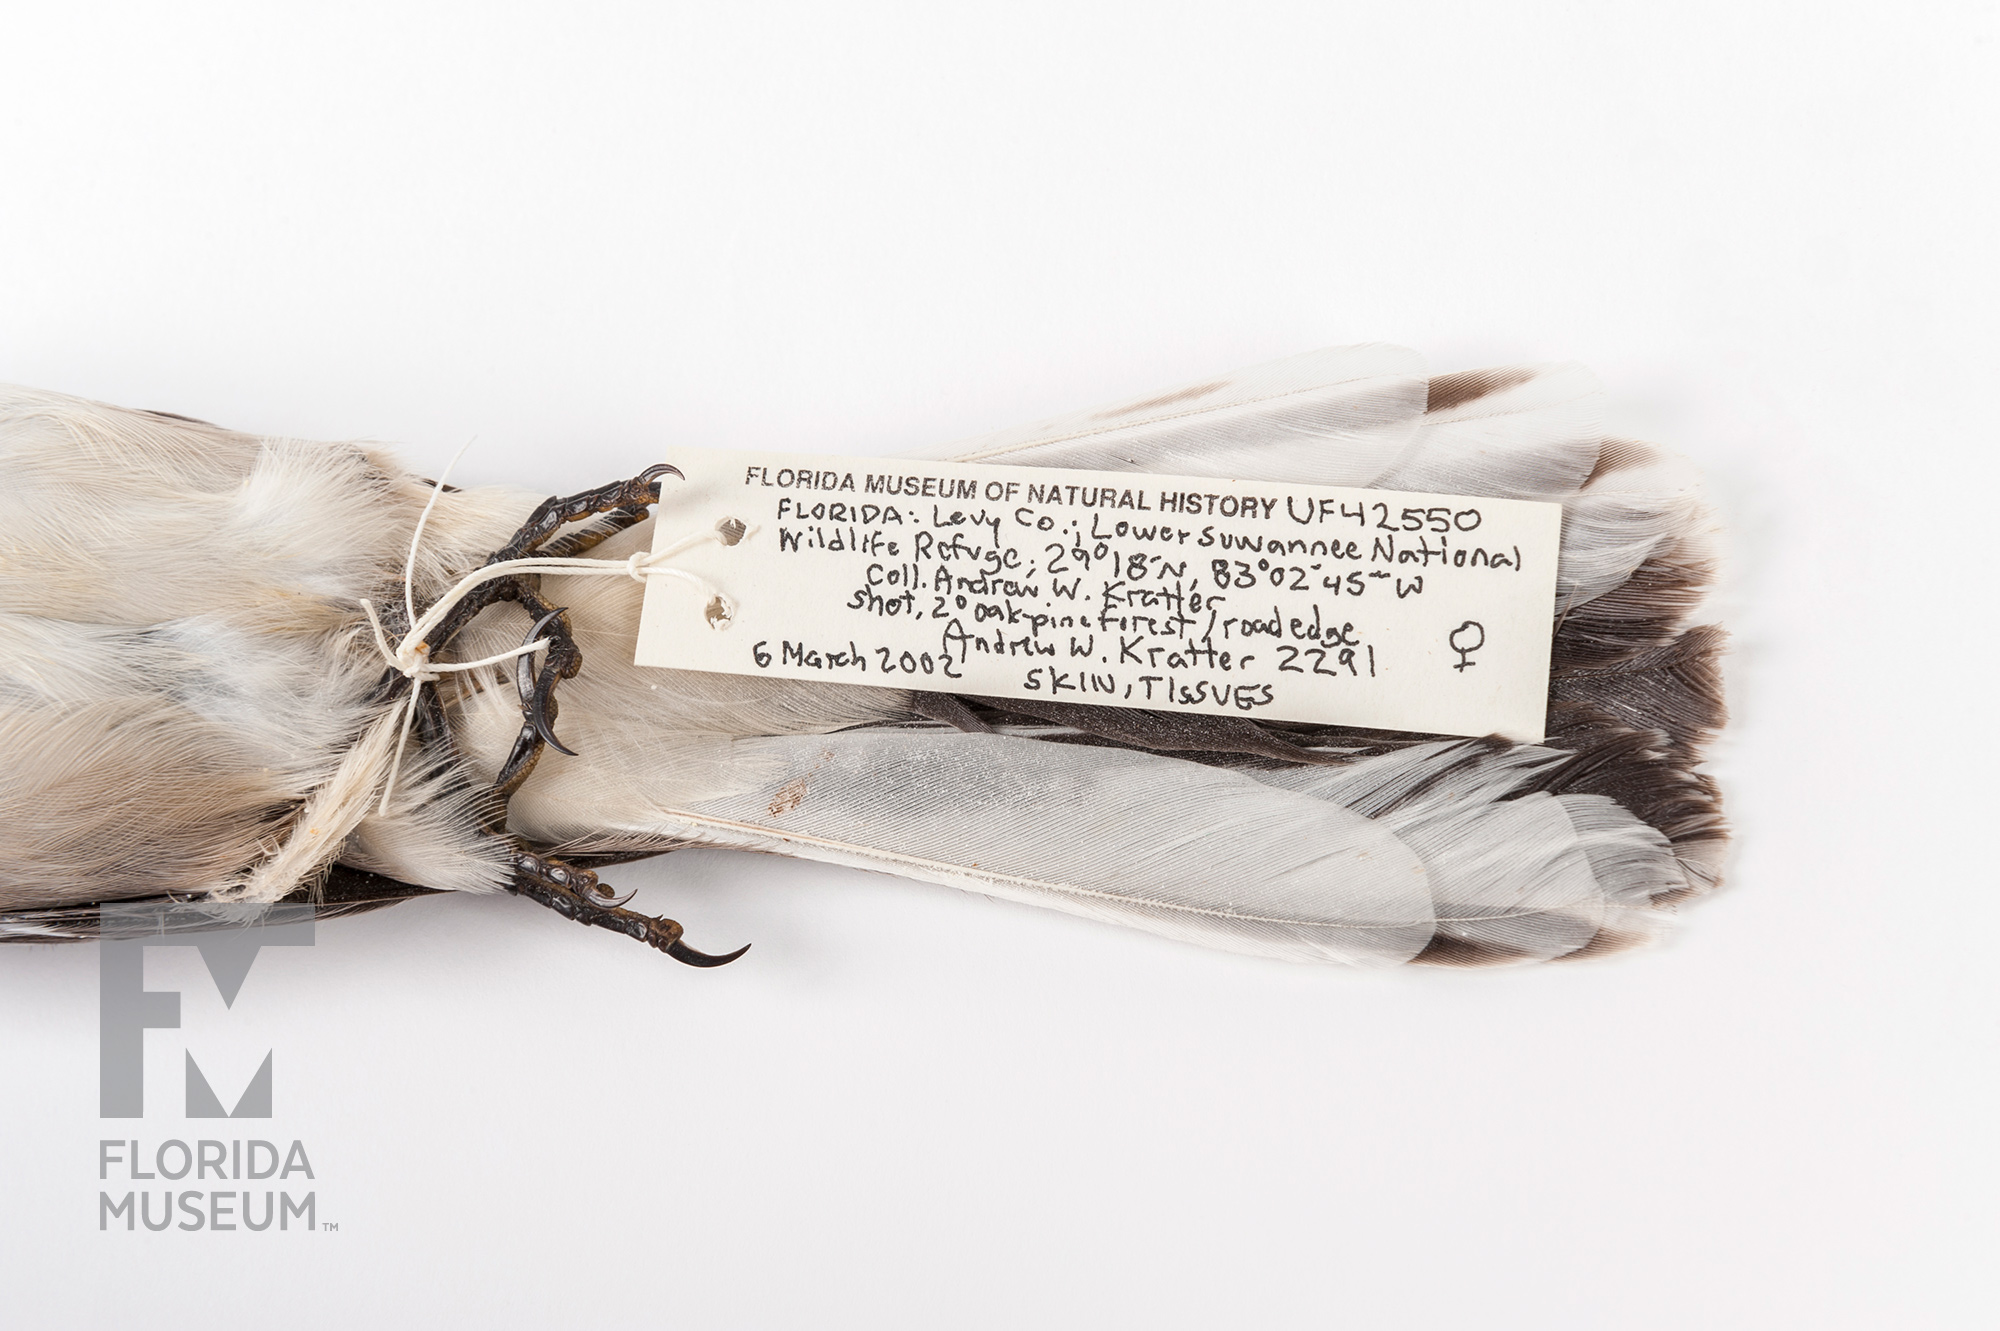 FLORIDA MUSEUM OF NATURAL HISTORY UF42550
FLORIDA: Levy Co.; Lower Suwannee National
Wildlife Refuge; 29°18'N, 83°02'45"W
Coll. Andrew W. Kratter
shot, 2° oak-pine forest/road edge
Andrew W. Kratter 2291
6 March 2002
♀
SKIN, TISSUES
FM
FLORIDA
MUSEUM™